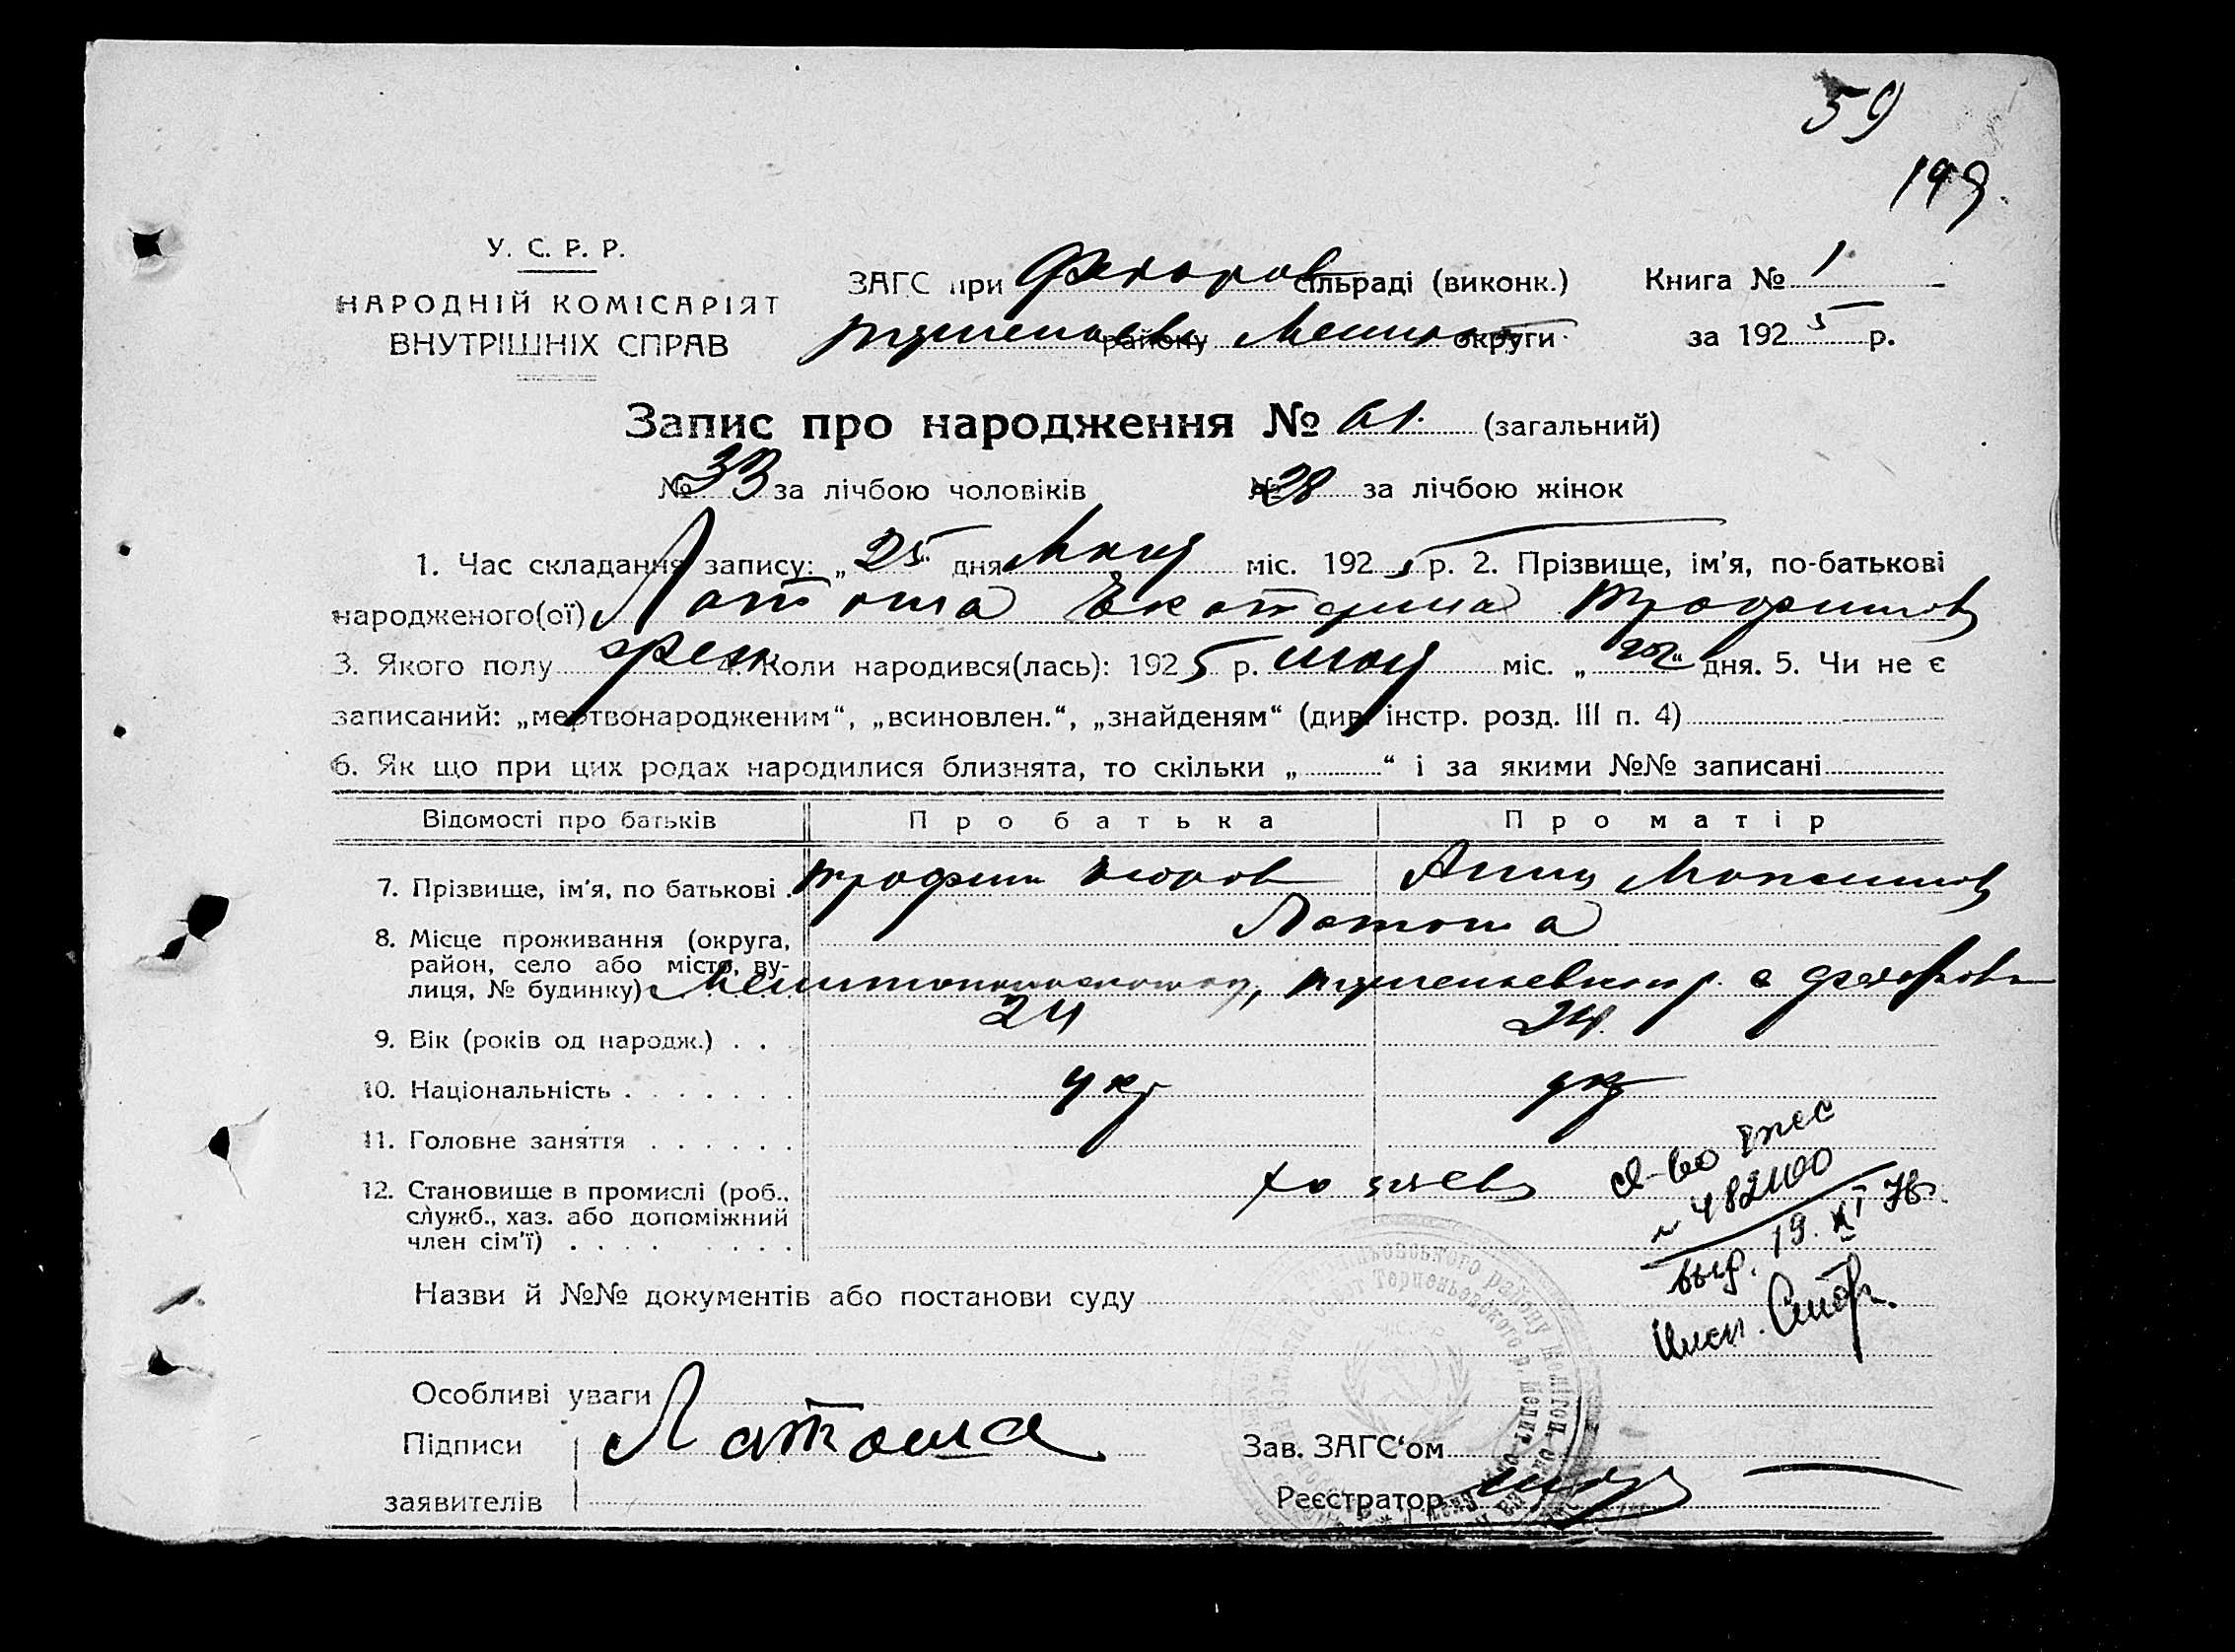 59
199.
У. С. Р. Р.
НАРОДНІЙ КОМІСАРІЯТ
ВНУТРІШНІХ СПРАВ
ЗАГС при Федоров сільраді (виконк.) Книга № 1
району округи за 1925 р.
Запис про народження № 61. (загальний)
№ 33 за лічбою чоловіків № 28 за лічбою жінок
1. Час складання запису: „25“ дня Мая міс. 1925 р. 2. Прізвище, ім’я, по-батькові
народженого(ої) Латоша Екатерина Трофимов
3. Якого полу жен 4. Коли народився(лась): 1925 р. мая міс. „22“ дня. 5. Чи не є
записаний: „мертвонародженим“, „всиновлен.“, „знайденям“ (див. інстр. розд. III п. 4)
6. Як що при цих родах народилися близнята, то скільки „ “ і за якими №№ записані
Відомості про батьків Про батька Про матір
7. Прізвище, ім’я, по батькові . Трофим Анна Максимов
Латоша
8. Місце проживання (округа,
район, село або місто, ву-
лиця, № будинку) с Федоровка
9. Вік (років од народж.) . . 24 24.
10. Національність . . . . . . . укр укр
11. Головне заняття . . . . . .
12. Становище в промислі (роб.,
служб., хаз. або допоміжний
член сім’ї) . . . . . . . .
хозяев
482100
выд. 19. XI 76г.
Инсп.
Назви й №№ документів або постанови суду
Особливі уваги
Підписи Латоша Зав. ЗАГС‘ом
заявителів Реєстратор